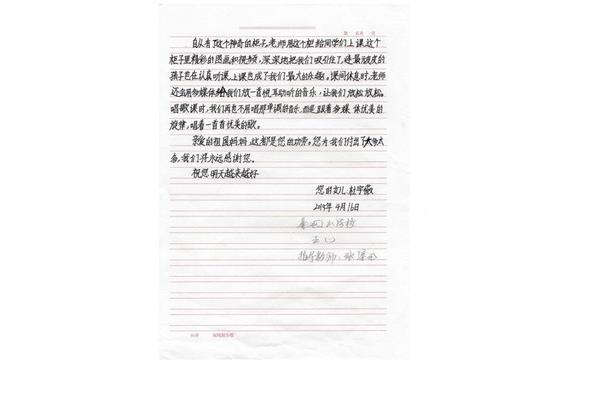 第 页 共 页
自从有了这个神奇的柜子,老师用这个柜给同学们上课,这个
柜子里精彩的图画和视频,深深地把我们吸引住了,连最顽皮的
孩子也在认真听课,上课也成了我们最大的乐趣。课间休息时,老师
还会用多媒体给我们放一首悦耳动听的音乐,让我们放松放松。
唱歌课时,我们再也不用唱那单调的音乐,而是跟着多媒体优美的
旋律,唱着一首首优美的歌。
亲爱的祖国妈妈,这都是您的功劳。您为我们付出了太多太
多,我们将永远感谢您。
祝您明天越来越好
您的女儿:杜宇薇
2014年4月16日
小学校
指导教师:张